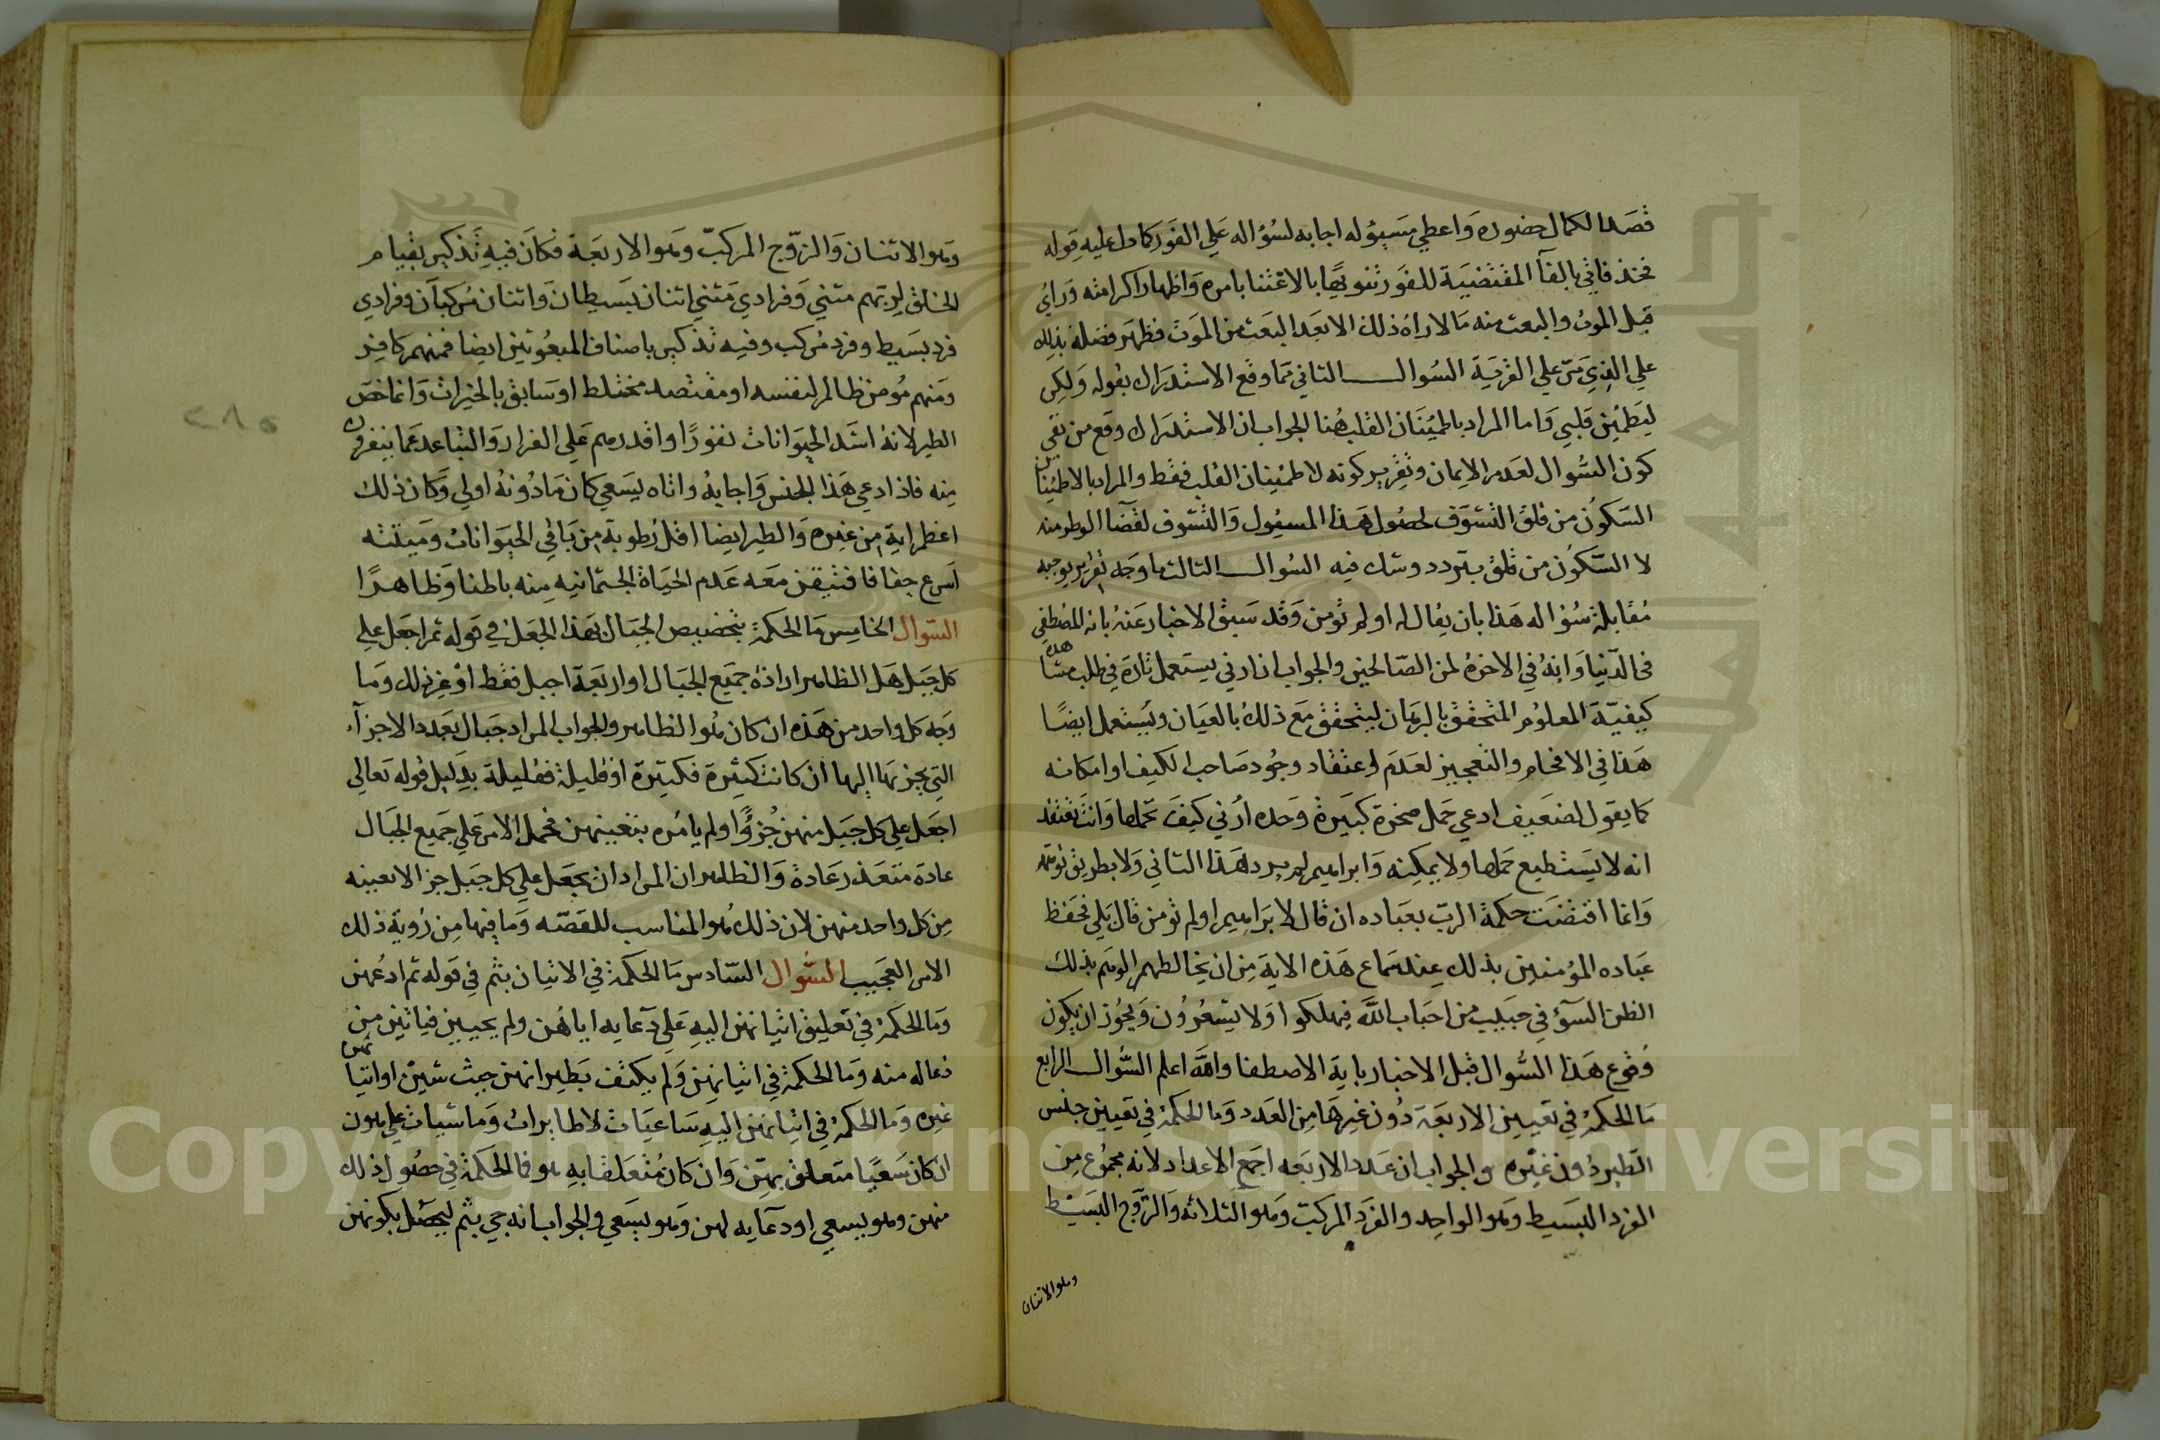 قصدا لكمال حضوره واعطي مسئوله اجابه لسؤاله علي الفور كما دل عليه قوله
فخذ فاتي بالفآ المقتضية للفور تنويها بالاعتنا بامره واظهارا كرامته وراي
قبل الموت والبعث منه ما لا يراه ذلك الا بعد البعث من الموت فظهر فضله بذلك
علي الذي مر علي القرية السوال الثاني مما وقع الاستدراك بقوله ولكن
ليطمئن قلبي واما المراد باطمئنان القلب هنا الجواب ان الاستدراك وقع من نفي
كون السؤال لعدم الايمان وتقرير كونه لاطمئنان القلب فقط والمراد بالاطمينان
السكون من قلق التشوف لحصول هذا المسؤل والتشوف لقضا الوطر منه
لا السكون من قلق بتردد وشك فيه السوال الثالث ما وجه تقرير يوجبه
مقابلة سؤاله هذا بان يقال له اولم تومن وقد سبق الاخبار عنه بانه المصطفي
في الدنيا وانه في الاخرة لمن الصالحين والجواب ان ارني يستعمل تارة في طلب مشاهدة
كيفية المعلوم المتحقق بالبرهان ليتحقق مع ذلك بالعيان ويستعمل ايضا
هذا في الافحام والتعجيز لعدم اعتقاد وجود صاحب الكيف او امكانه
كما يقول لضعيف ادعي حمل صخرة كبيرة وحده ارني كيف تحملها وانت تعتقد
انه لا يستطيع حملها ولا يمكنه وابراهيم لم يرد هذا الثاني ولا بطريق توهمه
وانما اقتضت حكمة الرب بعباده ان قال لابراهيم اولم تومن قال بلي فحفظ
عباده المؤمنين بذلك عند سماع هذه الاية من ان يخالطهم الوهم بذلك
الظن السوء في حبيب من احباب الله فيهلكوا ولا يشعرون ويجوز ان يكون
وقوع هذا السؤال قبل الاخبار باية الاصطفا والله اعلم السؤال الرابع
ما الحكمة في تعيين الاربعة دون غيرها من العدد وما الحكمة في تعيين جنس
الطير دون غيره والجواب ان عدد الاربعه اجمع الاعداد لانه مجموع من
الفرد البسيط وهو الواحد والفرد المركب وهو الثلاثه والزوج البسيط
وهو الاثنان
وهو الاثنان والزوج المركب وهو الاربعة فكان فيه تذكير بقيام
الخلق لربهم مثني وفرادي مثني اثنان بسيطان واثنان مركبان وفرادي
فرد بسيط وفرد مركب وفيه تذكير باصناف المبعوثين ايضا فمنهم كافر
ومنهم مؤمن ظالم لنفسه او مقتصد مختلط او سابق بالخيرات وانما خص
الطير لانه اشد الحيوانات نفورا واقدرهم علي الفرار والتباعد عما ينفرون
منه فاذا دعي هذا الجنس واجابه واتاه يسعي كان ما دونه اولي وكان ذلك
اعظم اية من غيره والطير ايضا اقل رطوبة من باقي الحيوانات وميتته
اسرع جفافا فتيقن معه عدم الحياة الجثمانيه منه باطنا وظاهرا
السؤال الخامس ما الحكمة بتخصيص الجبال بهذا الجعل في قوله ثم اجعل علي
كل جبل هل الظاهر ارادة جميع الجبال او اربعة اجبل فقط او غير ذلك وما
وجه كل واحد من هذه ان كان هو الظاهر والجواب المراد جبال بعدد الاجزآء
التي يجزيها اليها ان كانت كثيرة فكثيرة او قليلة فقليلة بدليل قوله تعالي
اجعل علي كل جبل منهن جزؤا ولم يامره بتعيينهن فحمل الامر علي جميع الجبال
عادة متعذر عادة والظاهر ان المراد ان يجعل علي كل جبل جزا لا بعينه
من كل واحد منهن لان ذلك هو المناسب للقصه وما فيها من رؤية ذلك
الامر العجيب السؤال السادس ما الحكمة في الاتيان بثم في قوله ثم ادعهن
وما الحكمة في تعليق اتيانهن اليه علي دعايه اياهن ولم يحيين فياتين من
دعاله منه وما الحكمة في اتيانهن ولم يكتف بطيرانهن حيث شين او اتيانهن
غيره وما الحكمة في اتيانهن اليه ساعيات لا طايرات وما شيات علي هون
ان كان سعيا متعلق بهن وان كان متعلقا به هو فما الحكمة في حصول ذلك
منهن وهو يسعي او دعايه لهن وهو يسعي والجواب انه جي بثم ليحصل بكونهن
٢٨٥
Copyright © King Saud University
جامعة الملك سعود